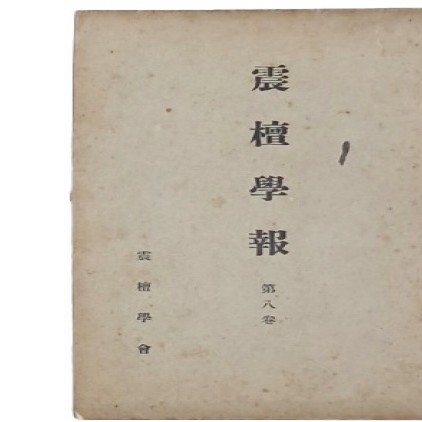 震檀學報
第八卷
震檀學會